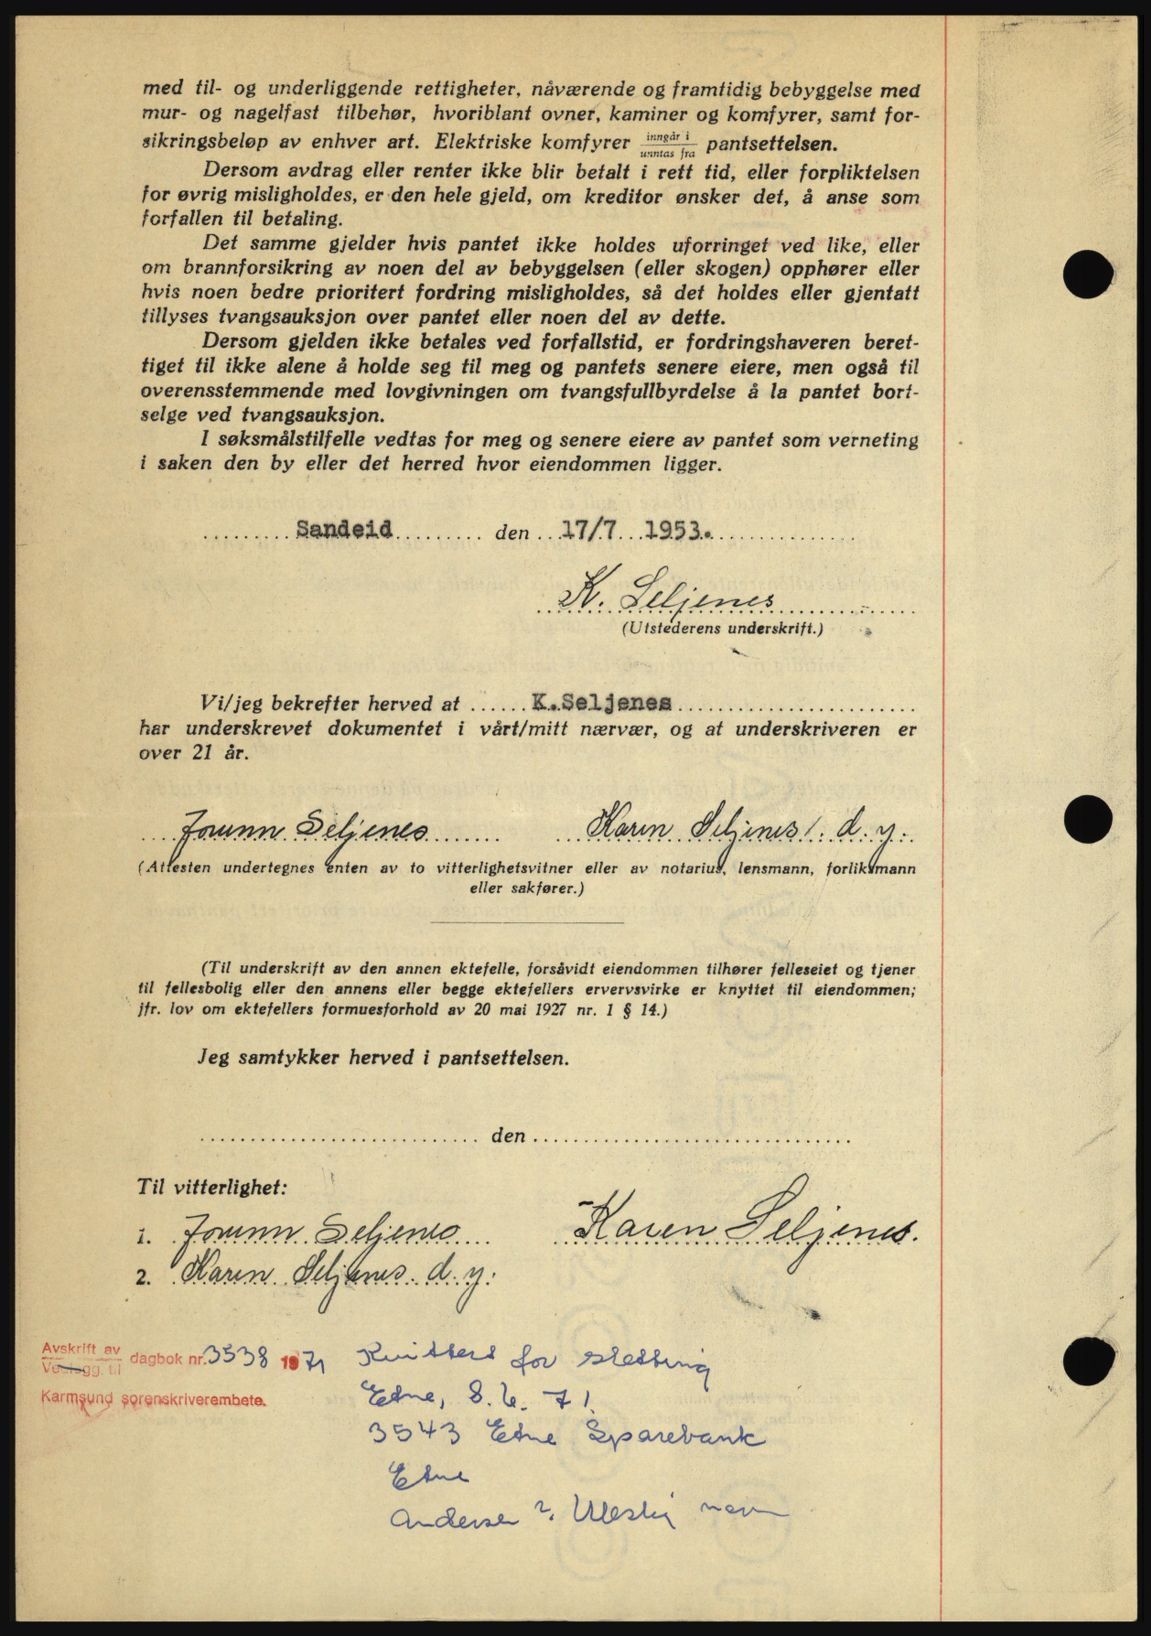 med til- og underliggende rettigheter, nåværende og framtidig bebyggelse med
mur- og nagelfast tilbehør, hvoriblant ovner, kaminer og komfyrer, samt for-
sikringsbeløp av enhver art. Elektriske komfyrer inngår i / unntas fra pantsettelsen.
Dersom avdrag eller renter ikke blir betalt i rett tid, eller forpliktelsen
for øvrig misligholdes, er den hele gjeld, om kreditor ønsker det, å anse som
forfallen til betaling.
Det samme gjelder hvis pantet ikke holdes uforringet ved like, eller
om brannforsikring av noen del av bebyggelsen (eller skogen) opphører eller
hvis noen bedre prioritert fordring misligholdes, så det holdes eller gjentatt
tillyses tvangsauksjon over pantet eller noen del av dette.
Dersom gjelden ikke betales ved forfallstid, er fordringshaveren beret-
tiget til ikke alene å holde seg til meg og pantets senere eiere, men også til
overensstemmende med lovgivningen om tvangsfullbyrdelse å la pantet bort-
selge ved tvangsauksjon.
I søksmålstilfelle vedtas for meg og senere eiere av pantet som verneting
i saken den by eller det herred hvor eiendommen ligger.
Sandeid den 17/7 1953.
K. Seljenes
(Utstederens underskrift.)
Vi/jeg bekrefter herved at K. Seljenes
har underskrevet dokumentet i vårt/mitt nærvær, og at underskriveren er
over 21 år.
Jorunn Seljenes Karen Seljenes d. y.
(Attesten undertegnes enten av to vitterlighetsvitner eller av notarius, lensmann, forliksmann
eller sakfører.)
(Til underskrift av den annen ektefelle, forsåvidt eiendommen tilhører felleseiet og tjener
til fellesbolig eller den annens eller begge ektefellers ervervsvirke er knyttet til eiendommen;
jfr. lov om ektefellers formuesforhold av 20 mai 1927 nr. 1 § 14.)
Jeg samtykker herved i pantsettelsen.
den
Til vitterlighet:
1. Jorunn Seljenes Karen Seljenes.
2. Karen Seljenes d. y.
Avskrift av
Vedlegg til dagbok nr. 3538 1971 Kvittert for sletting
Karmsund sorenskriverembete. Etne, 8. 6. 71.
3543 Etne Sparebank
Etne
Andersen